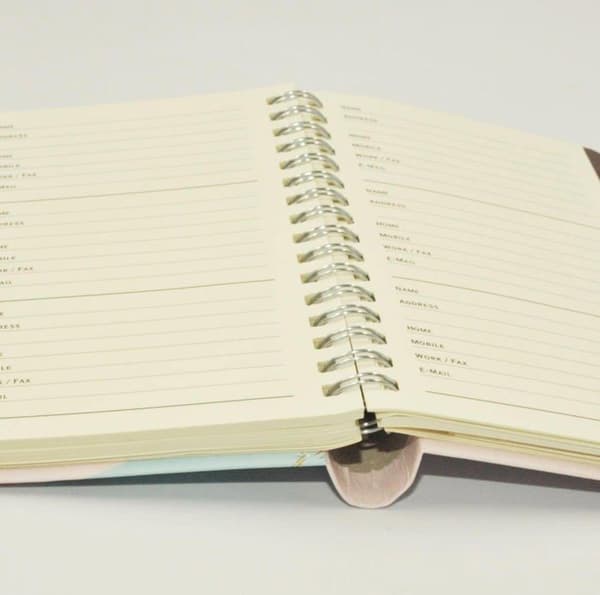 AME
DRESS
OME
OBILE
ORK / FAX
MAIL
ME
RESS
ME
BILE
RK / FAX
AIL
E
ESS
E
LE
/ FAX
IL
NAME
ADDRESS
HOME
MOBILE
WORK / FAX
E-MAIL
NAME
ADDRESS
HOME
MOBILE
WORK / FAX
E-MAIL
NAME
ADDRESS
HOME
MOBILE
WORK / FAX
E-MAIL